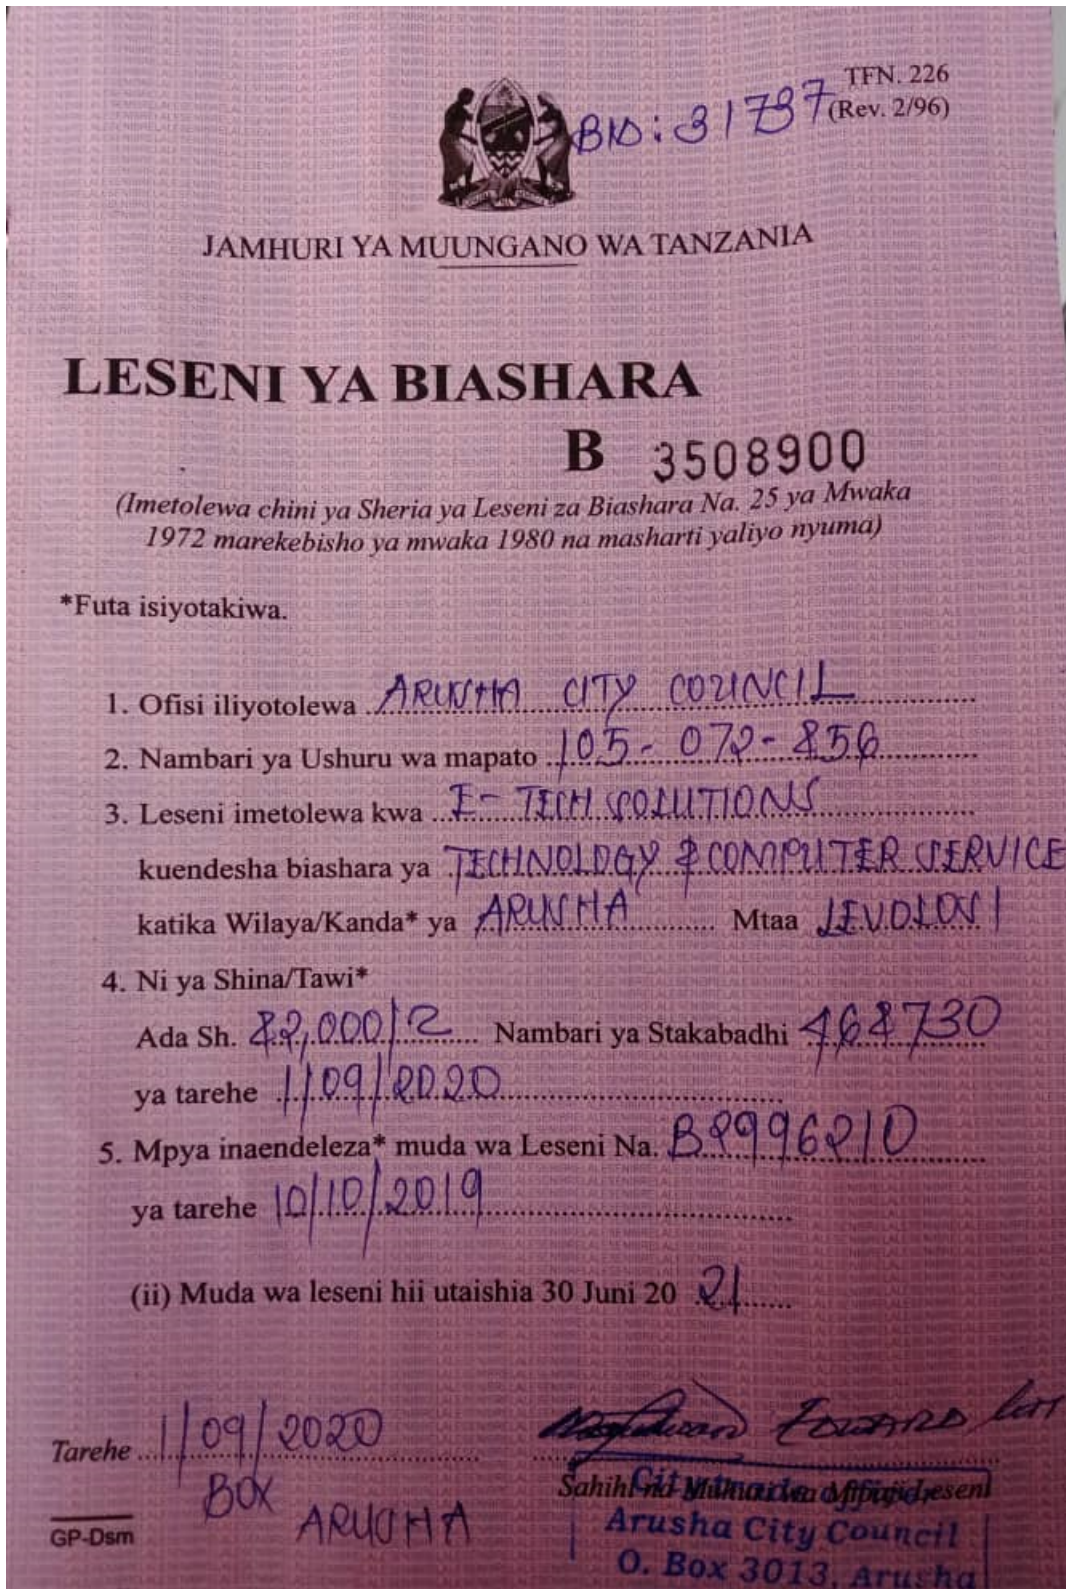 TFN. 226
BID: 31737
(Rev. 2/96)
JAMHURI YA MUUNGANO WA TANZANIA
LESENI YA BIASHARA
B 3508900
(Imetolewa chini ya Sheria ya Leseni za Biashara Na. 25 ya Mwaka
1972 marekebisho ya mwaka 1980 na masharti yaliyo nyuma)
*Futa isiyotakiwa.
1. Ofisi iliyotolewa ARUSHA CITY COUNCIL
2. Nambari ya Ushuru wa mapato 105-072-856
3. Leseni imetolewa kwa E-TECH SOLUTIONS
kuendesha biashara ya TECHNOLOGY & COMPUTER SERVICE
katika Wilaya/Kanda* ya ARUSHA Mtaa LEVOLOSI
4. Ni ya Shina/Tawi*
Ada Sh. 82,000/2 Nambari ya Stakabadhi 468730
ya tarehe 1/09/2020
5. Mpya inaendeleza* muda wa Leseni Na. B2996210
ya tarehe 10/10/2019
(ii) Muda wa leseni hii utaishia 30 Juni 20 21
Tarehe 1/09/2020
EDWARD
Sahihi na Muhuri wa Mpaji Leseni
BOX
ARUSHA
City trade officer
Arusha City Council
O. Box 3013, Arusha
GP-Dsm